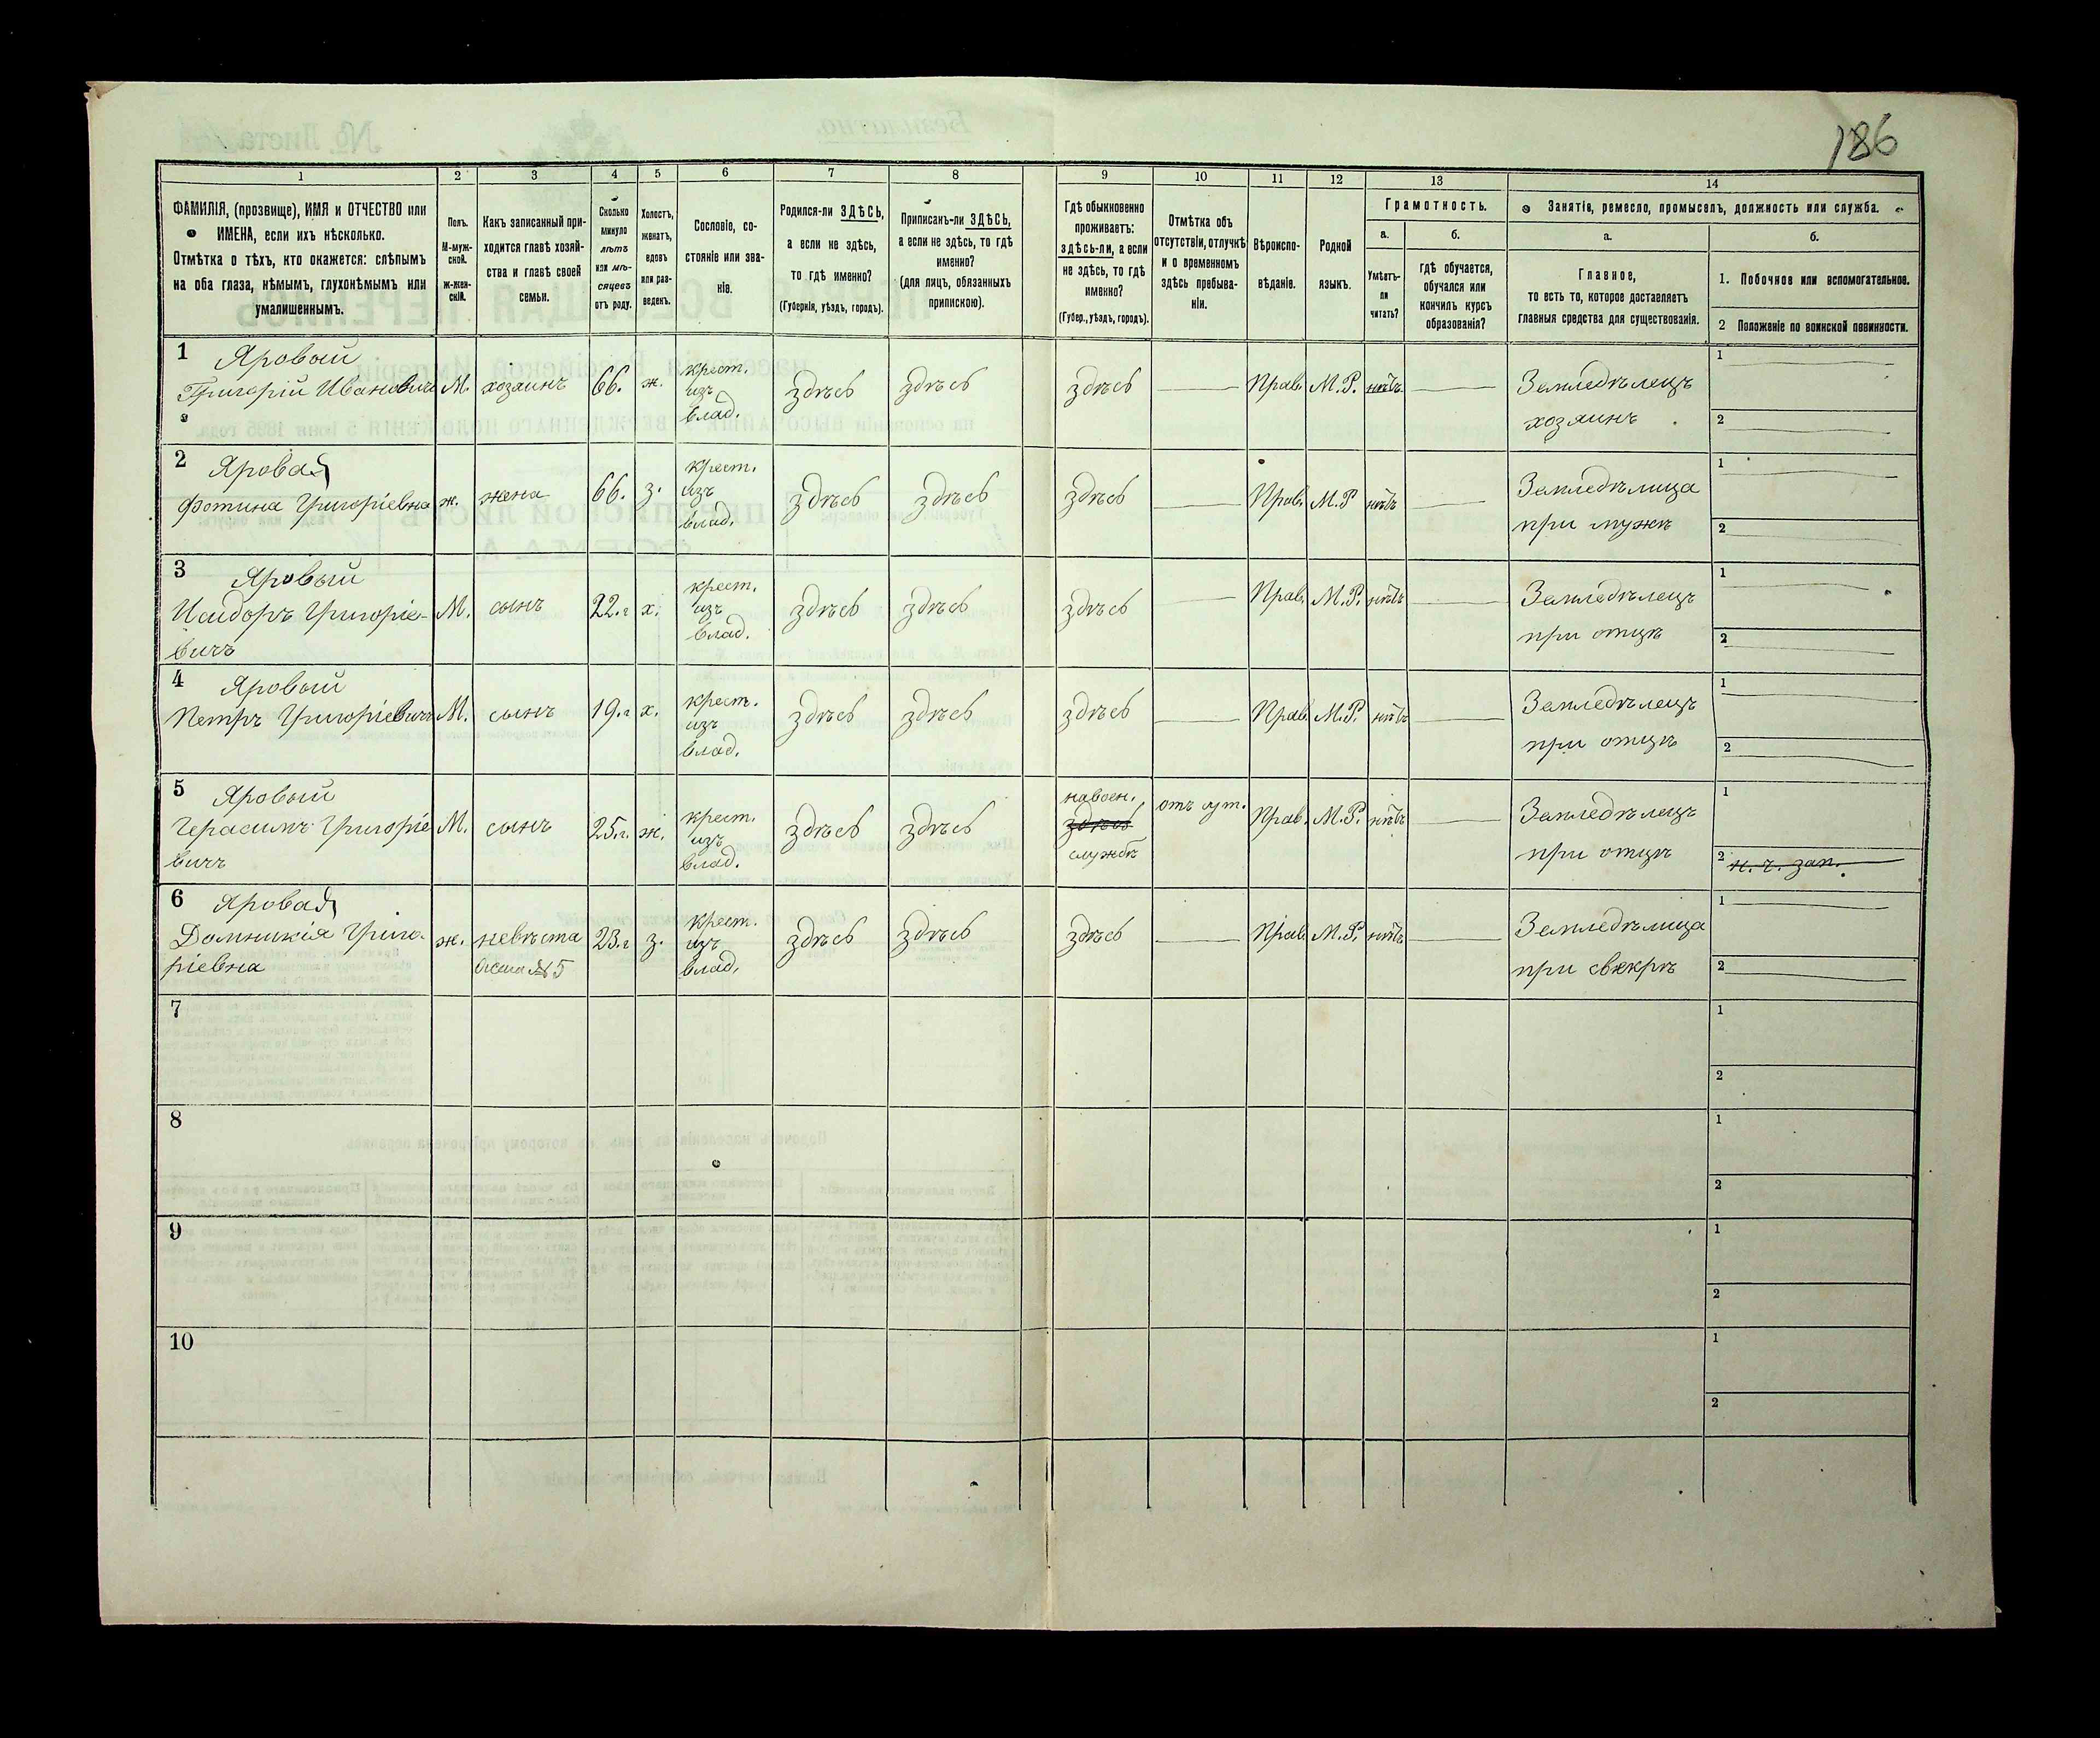 186
1 2 3 4 5 6 7 8 9 10 11 12 13 14
ФАМИЛІЯ, (прозвище), ИМЯ и ОТЧЕСТВО или
ИМЕНА, если ихъ нѣсколько.
Отмѣтка о тѣхъ, кто окажется: слѣпымъ
на оба глаза, нѣмымъ, глухонѣмымъ или
умалишеннымъ.
Полъ.
М-муж-
ской.
Ж-жен-
скій.
Какъ записанный при-
ходится главѣ хозяй-
ства и главѣ своей
семьи.
Сколько
минуло
лѣтъ
или мѣ-
сяцевъ
отъ роду.
Холостъ,
женатъ,
вдовъ
или раз-
веденъ.
Сословіе, со-
стояніе или зва-
ніе.
Родился-ли ЗДѢСЬ,
а если не здѣсь,
то гдѣ именно?
(Губернія, уѣздъ, городъ).
Приписанъ-ли ЗДѢСЬ,
а если не здѣсь, то гдѣ
именно?
(для лицъ, обязанныхъ
припискою).
Гдѣ обыкновенно
проживаетъ:
здѣсь-ли, а если
не здѣсь, то гдѣ
именно?
(Губер., уѣздъ, городъ).
Отмѣтка объ
отсутствіи, отлучкѣ
и о временномъ
здѣсь пребыва-
ніи.
Вѣроиспо-
вѣданіе.
Родной
языкъ.
Грамотность.
а.
Умѣетъ-
ли
читать?
б.
гдѣ обучается,
обучался или
кончилъ курсъ
образованія?
Занятіе, ремесло, промыселъ, должность или служба.
а.
Главное,
то есть то, которое доставляетъ
главныя средства для существованія.
б.
1. Побочное или вспомогательное.
2 Положеніе по воинской повинности.
1 Яровый
Григорій Ивановичъ
М. хозяинъ 66. ж.
крест.
изъ
влад.
здѣсь здѣсь здѣсь Прав. М.Р. нѣтъ
Земледѣлецъ
хозяинъ
1
2
2 Яровая
Фотина Григоріевна
ж. жена 66. з.
крест.
изъ
влад.
здѣсь здѣсь здѣсь Прав. М.Р нѣтъ
Земледѣлица
при мужѣ
1
2
3 Яровый
Исидоръ Григоріе-
вичъ
М. сынъ 22.г х.
крест.
изъ
влад.
здѣсь здѣсь здѣсь Прав. М.Р. нѣтъ
Земледѣлецъ
при отцѣ
1
2
4 Яровый
Петръ Григоріевичъ
М. сынъ 19.г х.
крест.
изъ
влад.
здѣсь здѣсь здѣсь Прав. М.Р. нѣтъ
Земледѣлецъ
при отцѣ
1
2
5 Яровый
Герасимъ Григоріе
вичъ
М. сынъ 25.г. ж.
крест.
изъ
влад.
здѣсь здѣсь
на воен.
здѣсь
службѣ
отъ сут. Прав. М.Р. нѣтъ
Земледѣлецъ
при отцѣ
1
2 н. ч. зап.
6 Яровая
Домникія Григо-
ріевна
ж. невѣста
жена №5
23.г з.
крест.
изъ
влад.
здѣсь здѣсь здѣсь Прав М.Р. нѣтъ
Земледѣлица
при свекрѣ
1
2
7
1
2
8
1
2
9
1
2
10
1
2